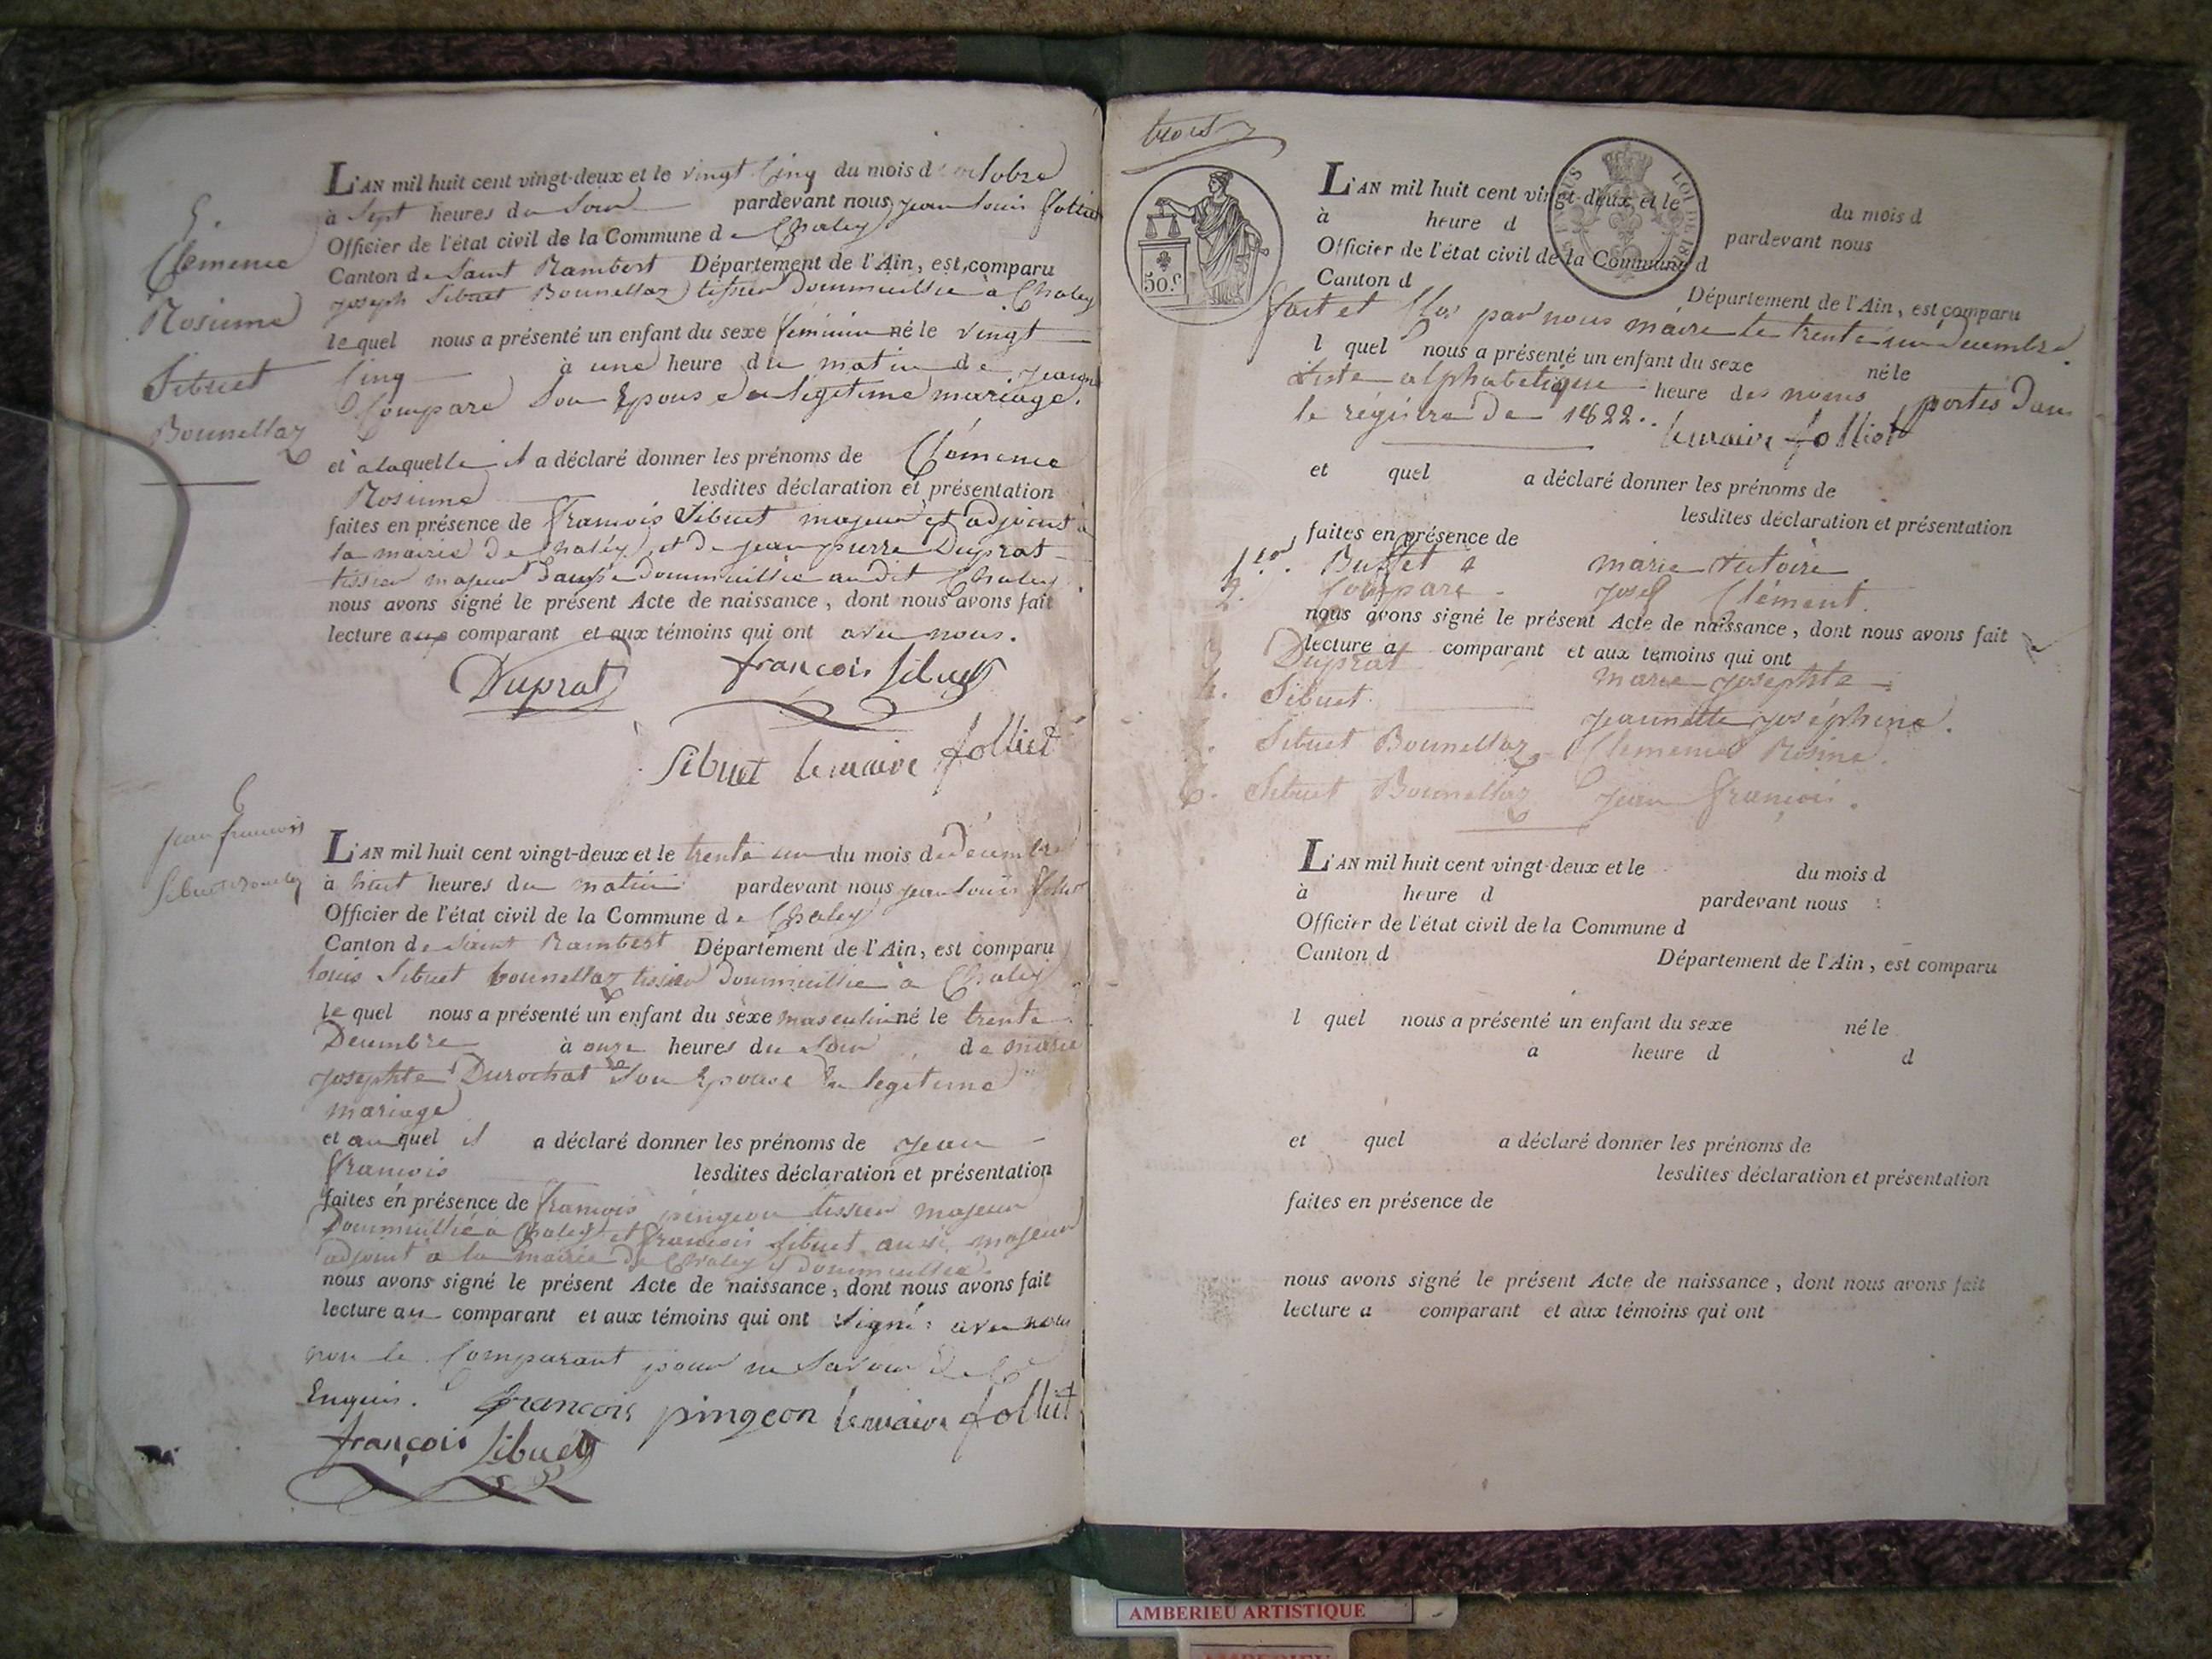 5.
Clemence
Rosinne
Sibuet
Bounellaz
L'AN mil huit cent vingt-deux et le vingt cinq du mois d'octobre
à Sept heures du Soir pardevant nous jean Louis folliet
Officier de l'état civil de la Commune de Chaley
Canton de Saint Rambert Département de l'Ain, est comparu
joseph Sibuet Bounellaz tissier Dommicillié à Chaley
lequel nous a présenté un enfant du sexe feminin né le vingt
Cinq à une heure du matin de jeanne
Compare Son Epouse en légitime mariage.
et a laquelle il a déclaré donner les prénoms de Clémence
Rosinne lesdites déclaration et présentation
faites en présence de francois Sibuet majeur et adjoint à
la mairie de Chaley, et de jean pierre Duprat
tissier majeur Dommicillié au dit Chaley
nous avons signé le présent Acte de naissance, dont nous avons fait
lecture aux comparant et aux témoins qui ont avec nous.
Duprat françois Sibuet
Sibuet le maire folliet
6
jean francois
Sibuet Bounellaz
L'AN mil huit cent vingt-deux et le trente un du mois de Decembre
à huit heures du matin pardevant nous jean Louis folliet
Officier de l'état civil de la Commune de Chaley
Canton de Saint Rambert Département de l'Ain, est comparu
louis Sibuet bounellaz tissier Dommicillié à Chaley
lequel nous a présenté un enfant du sexe masculin né le trente
Decembre à onze heures du Soir de marie
josephte Durochat Son Epouse En legitime
mariage
et au quel il a déclaré donner les prénoms de jean
francois lesdites déclaration et présentation
faites en présence de francois pingeon tissier majeur
Dommicillié à Chaley et francois Sibuet aussi majeur
adjoint a la mairie de Chaley y dommicillié
nous avons signé le présent Acte de naissance, dont nous avons fait
lecture au comparant et aux témoins qui ont signé avec nous
non le Comparant pour ne Savoir de ce
Enquis. francois pingeon le maire folliet
françois Sibuet
trois
50.c
LOI DE 18
L'AN mil huit cent vingt-deux et le du mois d
à heure d pardevant nous
Officier de l'état civil de la Commune d
Canton d Département de l'Ain, est comparu
fait et Clos par nous maire le trente un Decembre
l quel nous a présenté un enfant du sexe né le
Liste alphabetique heure des noms portés Dans
le régistre de 1822. le maire folliet
et quel a déclaré donner les prénoms de
lesdites déclaration et présentation
faites en présence de
1.er Buffet marie
2. Compare josef Clément.
nous avons signé le présent Acte de naissance, dont nous avons fait
lecture a comparant et aux témoins qui ont
3 Duprat marie josephte
4. Sibuet jeannette joséphine.
Sibuet Bounellaz Clemence Rosine.
6. Sibuet Bounellaz jean françois.
L'AN mil huit cent vingt-deux et le du mois d
à heure d pardevant nous
Officier de l'état civil de la Commune d
Canton d Département de l'Ain, est comparu
l quel nous a présenté un enfant du sexe né le
a heure d d
et quel a déclaré donner les prénoms de
lesdites déclaration et présentation
faites en présence de
nous avons signé le présent Acte de naissance, dont nous avons fait
lecture a comparant et aux témoins qui ont
AMBERIEU ARTISTIQUE
AMBERIEU